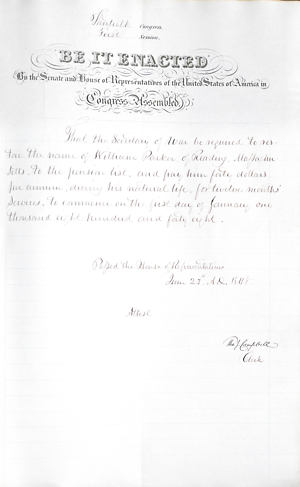 Thirtieth Congress
First Session
BE IT ENACTED
By the Senate and House of Representatives of the United States of America in
Congress Assembled,
That the Secretary of War be required to res-
tore the name of William Parker of Reading, Massachu
setts, to the pension list, and pay him forty dollars
per annum, during his natural life, for twelve months'
services, to commence on the first day of January one
thousand eight hundred and forty eight.
Passed the House of Representatives
June 23d A.D. 1848.
Attest
Tho J Campbell
Clerk